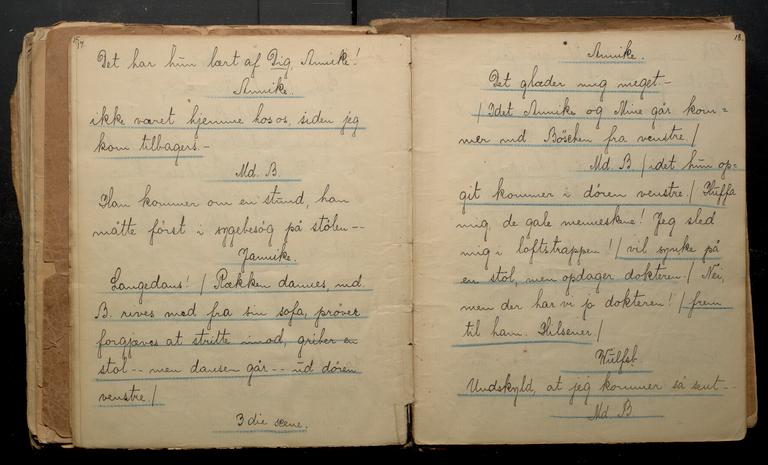 15/17.
Det har hun lært af Dig, Annike!
Annike.
ikke været hjemme hos os, siden jeg
kom tilbagers.-
Md. B.
Han kommer om en stund, han
måtte først i sygebesøg på stølen--
Jannike.
Langedans! / Rækken dannes, md.
B. rives med fra sin sofa, prøver
forgjæves at stritte imod, griber en
stol -- men dansen går -- ud døren
venstre /
3die scene.
18.
Annike.
Det glæder mig meget.-
/ Idet Annike og Mine går kom=
mer md Böschen fra venstre. /
Md. B / idet hun op=
git kommer i døren venstre. / Huffa
mig, de gale menneskene! Jeg sled
mig i loftstrappen! / vil synke på
en stol, men opdager dokteren. / Nei,
men der har vi jo dokteren! / frem
til ham. Hilsener. /
Wulfsb.
Undskyld, at jeg kommer så sent --
Md. B